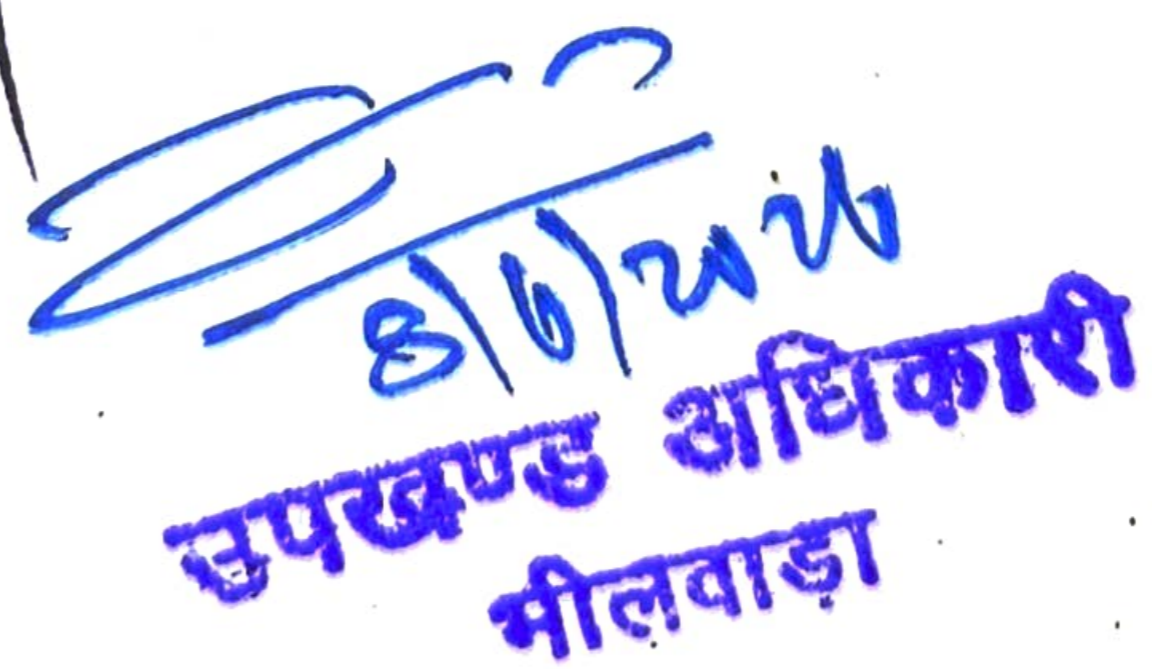 8/6/2026
उपखण्ड अधिकारी
भीलवाड़ा